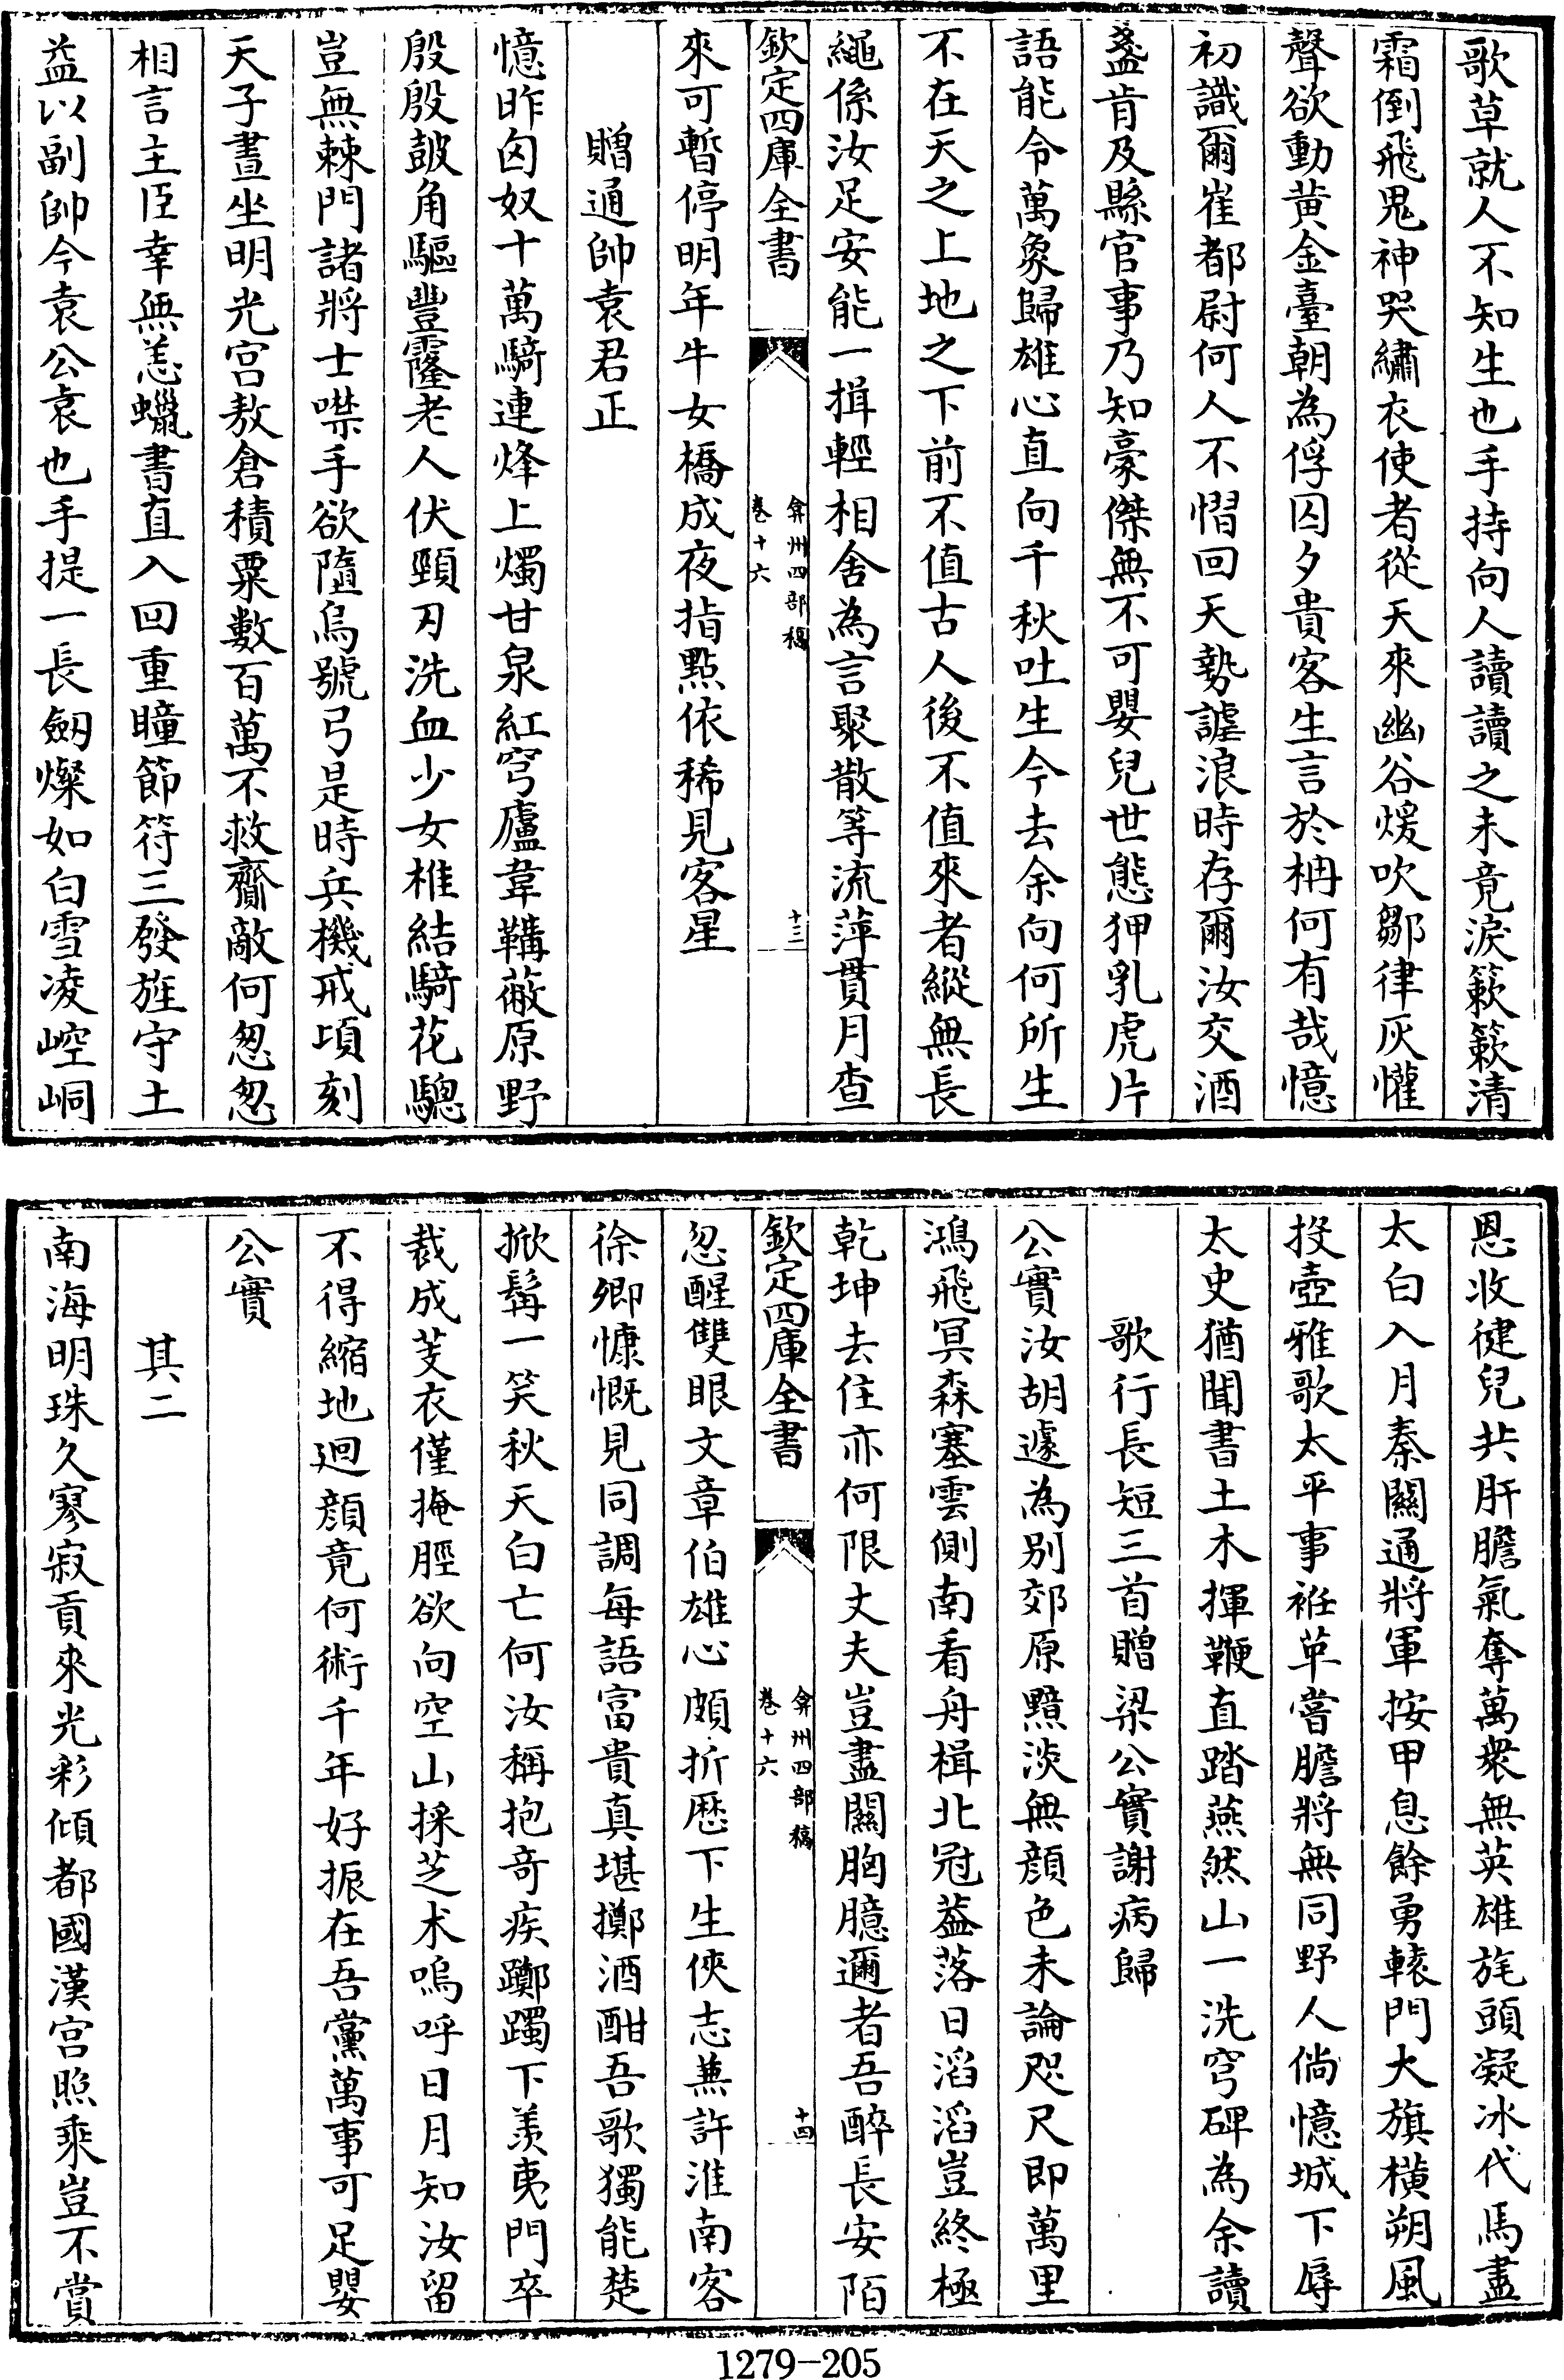 歌草就人不知生也手持向人讀讀之未竟淚簌簌清
霜倒飛鬼神哭繡衣使者從天來幽谷煖吹鄒律灰懽
聲欲動黄金臺朝為俘囚夕貴客生言於柟何有哉憶
初識爾崔都尉何人不慴回天勢謔浪時存爾汝交酒
盞肯及縣官事乃知豪傑無不可嬰兒世態狎乳虎片
語能令萬象歸雄心直向千秋吐生今去余向何所生
不在天之上地之下前不值古人後不值來者縱無長
繩係汝足安能一揖輕相舍為言聚散等流萍貫月查
欽定四庫全書
弇州四部稿
卷十六
十三
來可暫停明年牛女橋成夜指點依稀見客星
贈通帥袁君正
憶昨匈奴十萬騎連烽上燭甘泉紅穹廬韋鞲蔽原野
殷殷鼓角驅豐霳老人伏頸刃洗血少女椎結騎花驄
豈無棘門諸將士噤手欲隨烏號弓是時兵機戒頃刻
天子晝坐明光宫敖倉積粟數百萬不救齎敵何怱怱
相言主臣幸無恙蠟書直入回重瞳節符三發旌守土
益以副帥今袁公袁也手提一長劒燦如白雪凌崆峒
恩收健兒共肝膽氣奪萬衆無英雄旄頭凝冰代馬盡
太白入月秦關通將軍按甲息餘勇轅門大旗横朔風
投壺雅歌太平事袵革嘗膽將無同野人倘憶城下辱
太史猶聞書土木揮鞭直踏燕然山一洗穹碑為余讀
歌行長短三首贈梁公實謝病歸
公實汝胡遽為别郊原黯淡無顔色未論咫尺即萬里
鴻飛冥森塞雲側南看舟楫北冠葢落日滔滔豈終極
乾坤去住亦何限丈夫豈盡關胸臆邇者吾醉長安陌
欽定四庫全書
弇州四部稿
卷十六
十四
忽醒雙眼文章伯雄心頗折歴下生俠志兼許淮南客
徐卿慷慨見同調每語富貴真堪擲酒酣吾歌獨能楚
掀髯一笑秋天白亡何汝稱抱奇疾躑躅下羨夷門卒
裁成芰衣僅掩脛欲向空山採芝朮嗚呼日月知汝留
不得縮地迴顔竟何術千年好振在吾黨萬事可足嬰
公實
其二
南海明珠久寥寂貢來光彩傾都國漢宫照乘豈不賞
1279-205